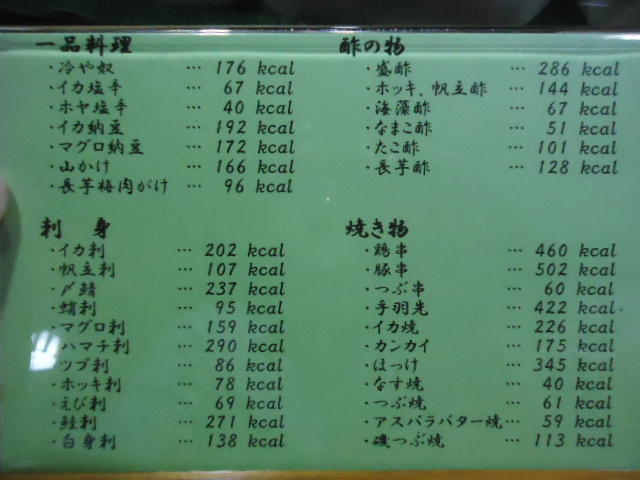 一品料理
・冷や奴 … 176 kcal
・イカ塩辛 … 67 kcal
・ホヤ塩辛 … 40 kcal
・イカ納豆 … 192 kcal
・マグロ納豆 … 172 kcal
・山かけ … 166 kcal
・長芋梅肉がけ … 96 kcal
酢の物
・盛酢 … 286 kcal
・ホッキ、帆立酢 … 144 kcal
・海藻酢 … 67 kcal
・なまこ酢 … 51 kcal
・たこ酢 … 101 kcal
・長芋酢 … 128 kcal
刺 身
・イカ刺 … 202 kcal
・帆立刺 … 107 kcal
・〆鯖 … 237 kcal
・蛸刺 … 95 kcal
・マグロ刺 … 159 kcal
・ハマチ刺 … 290 kcal
・ツブ刺 … 86 kcal
・ホッキ刺 … 78 kcal
・えび刺 … 69 kcal
・鮭刺 … 271 kcal
・白身刺 … 138 kcal
焼き物
・鶏串 … 460 kcal
・豚串 … 502 kcal
・つぶ串 … 60 kcal
・手羽先 … 422 kcal
・イカ焼 … 226 kcal
・カンカイ … 175 kcal
・ほっけ … 345 kcal
・なす焼 … 40 kcal
・つぶ焼 … 61 kcal
・アスパラバター焼… 59 kcal
・磯つぶ焼 … 113 kcal